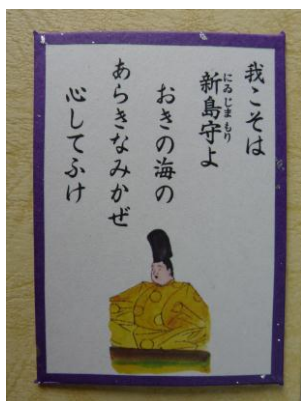 我こそは
新島守よ
にゐじまもり
おきの海の
あらきなみかぜ
心してふけ